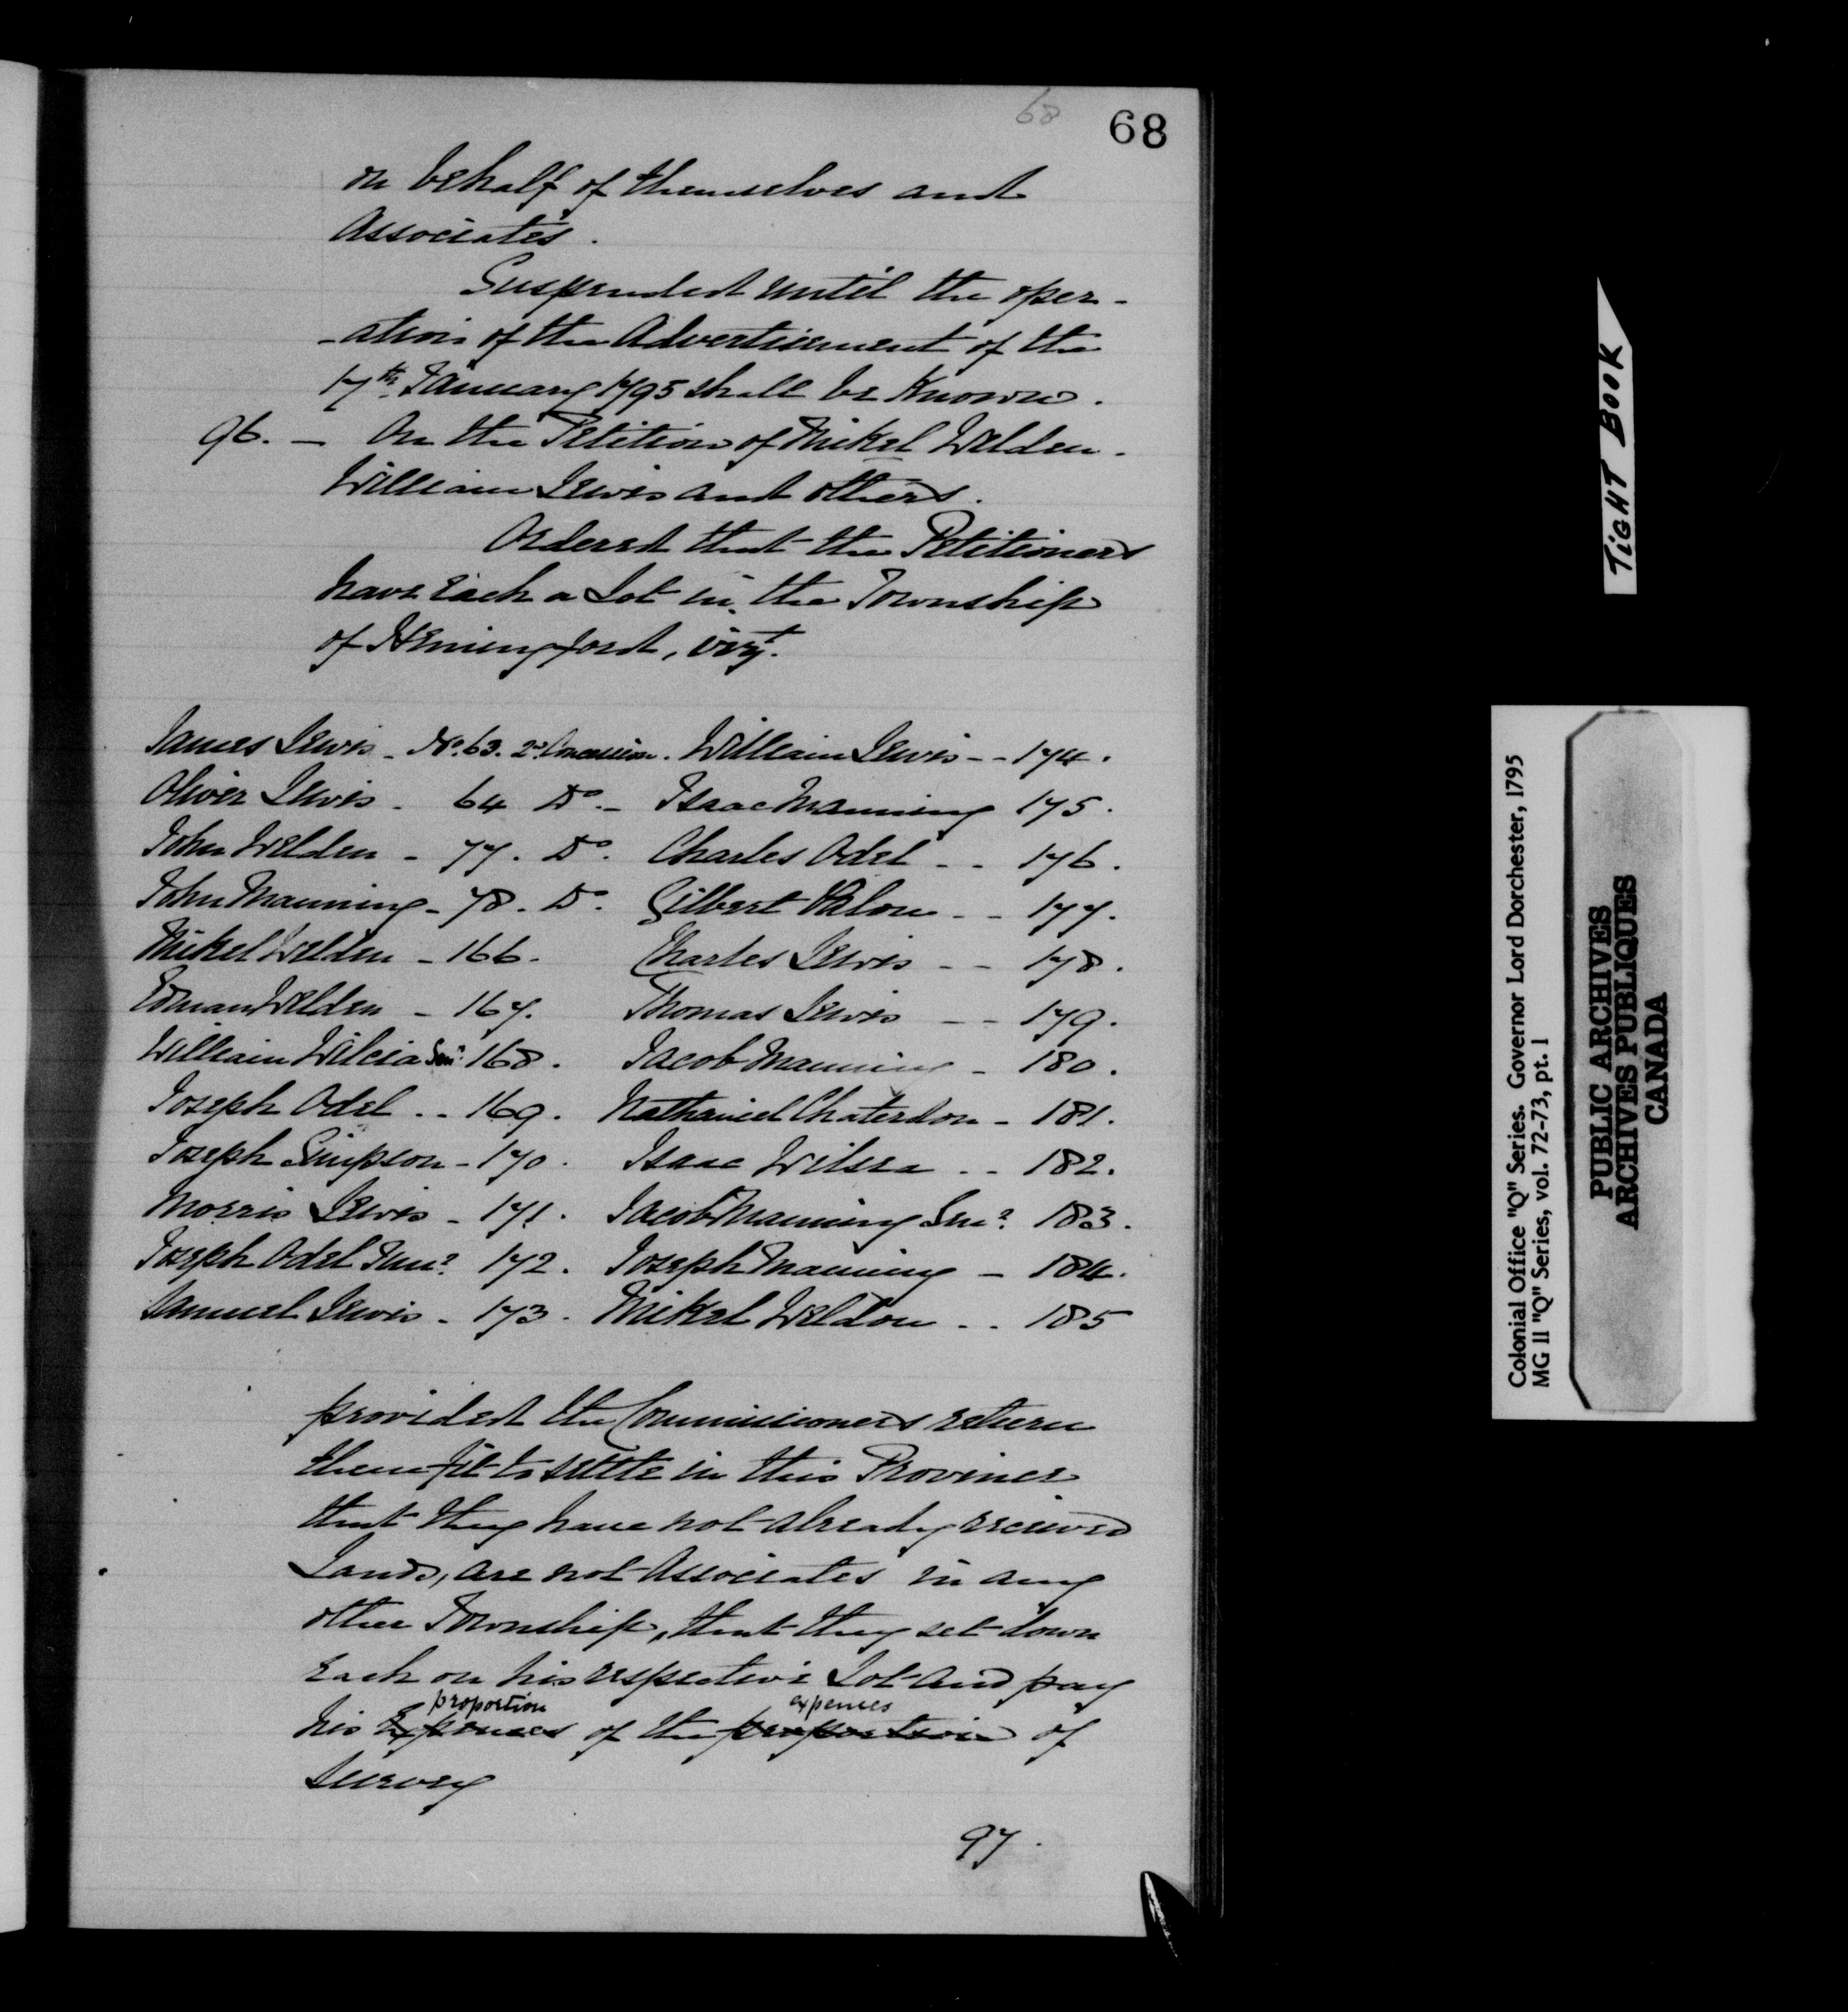 68
68
on behalf of themselves and
Associates.
Suspended until the oper-
-ation of the Advertisement of the
17th January 1795 shall be Known.
96. — On the Petition of Mikel Welden.
William Lewis and others.
Ordered that the Petitioners
have Each a Lot in the Township
of Hemingford, vizt.
James Lewis - No. 63. 2d Concession. William Lewis - - 174.
Oliver Lewis - 64 Do. - Isaac Manning 175.
John Welden - 77. Do. Charles Odel - - 176.
John Manning - 78. Do. Gilbert - - 177.
Mikel Welden - 166. Charles Lewis - - 178.
Welden - 167. Thomas Lewis - - 179.
William Wilcia Senr. 168. Jacob Manning - 180.
Joseph Odel - - 169. Nathaniel Chaterdon - 181.
Joseph Simpson - 170. Isaac Wilsea - - 182.
Morris Lewis - 171. Jacob Manning Senr. 183.
Joseph Odel Junr. 172. Joseph Manning - 184.
Samuel Lewis - 173. Mikel Weldon - - 185
provided the Commissioners return
them fit to settle in this Province
that they have not already received
Lands, are not Associates in any
other Township, that they set down
Each on his respective Lot and pay
proportion expences
his Expences of the proportion of
Survey
97.
TIGHT BOOK
Colonial Office "Q" Series. Governor Lord Dorchester, 1795
MG 11 "Q" Series, vol. 72-73, pt. 1
PUBLIC ARCHIVES
ARCHIVES PUBLIQUES
CANADA